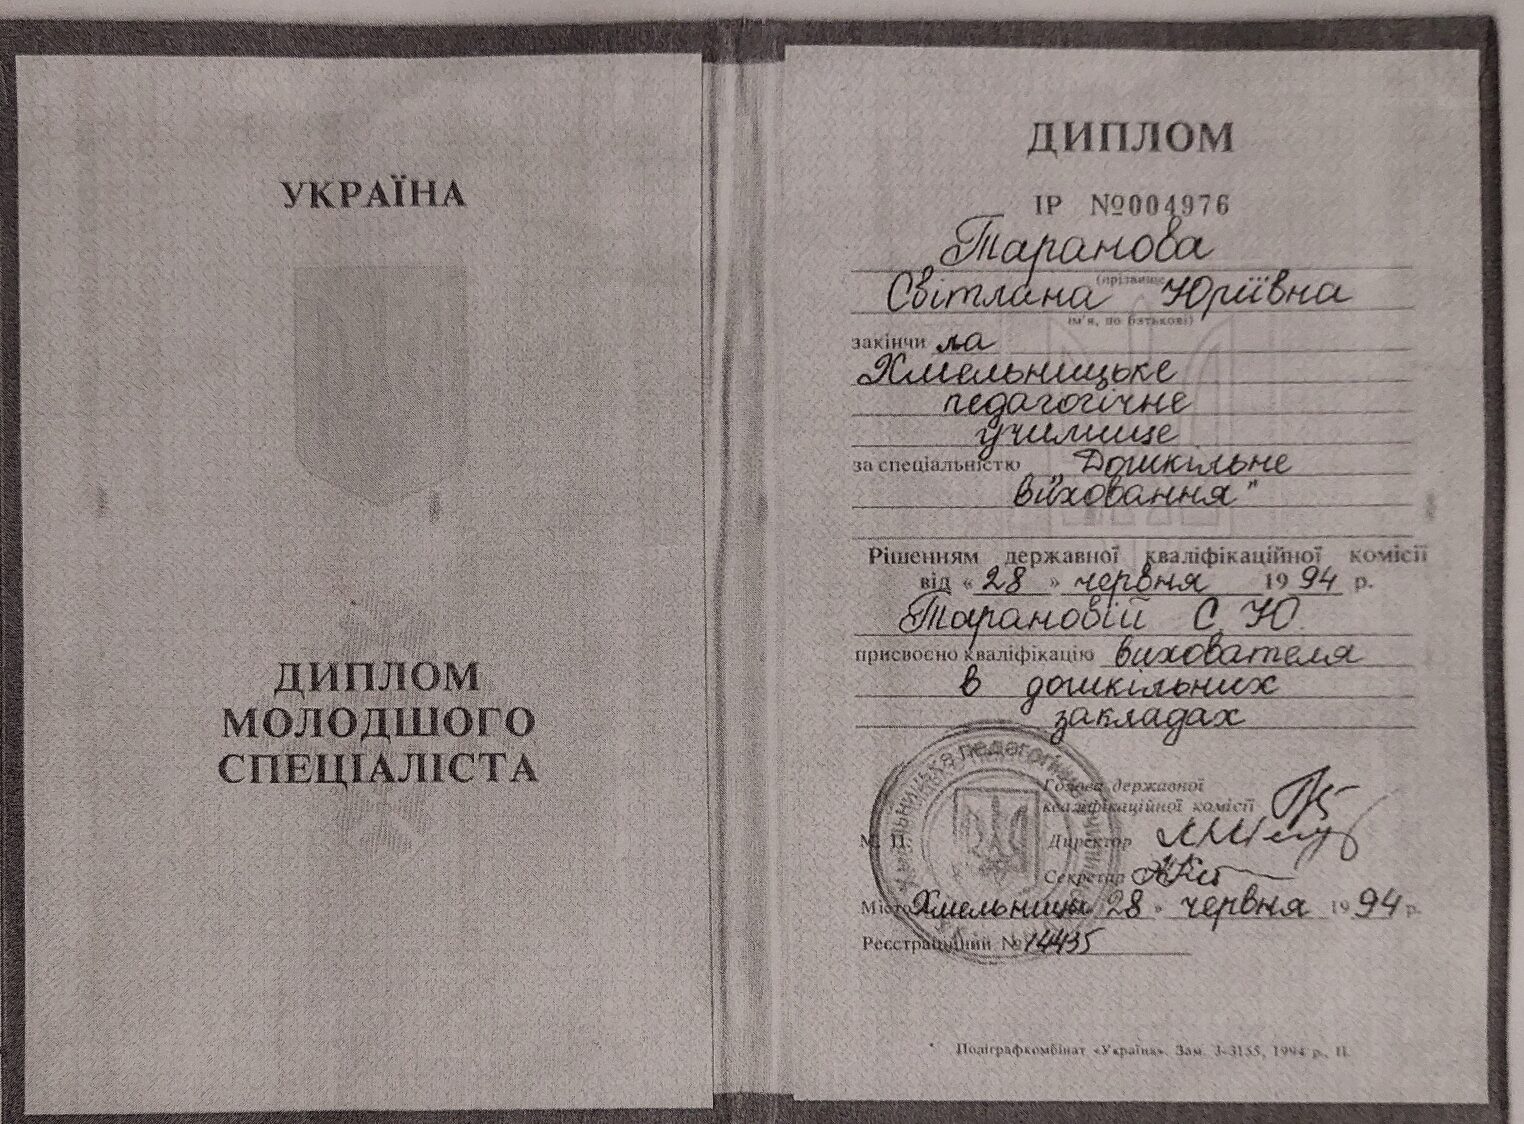 УКРАЇНА
ДИПЛОМ
МОЛОДШОГО
СПЕЦІАЛІСТА
ДИПЛОМ
ІР №004976
Таранова
(прізвище
Світлана Юріївна
ім'я, по батькові)
закінчи ла
Хмельницьке
педагогічне
училище
за спеціальністю „Дошкільне
виховання"
Рішенням державної кваліфікаційної комісії
від «28» червня 1994 р.
Тарановій С. Ю.
присвоєно кваліфікацію вихователя
в дошкільних
закладах
Голова державної
кваліфікаційної комісії
М. П.
Директор
Секретар
Місто Хмельницьк 28 » червня 1994 р.
Реєстраційний № 14435
Поліграфкомбінат «Україна». Зам. 3-3155, 1994 р., ІІ.